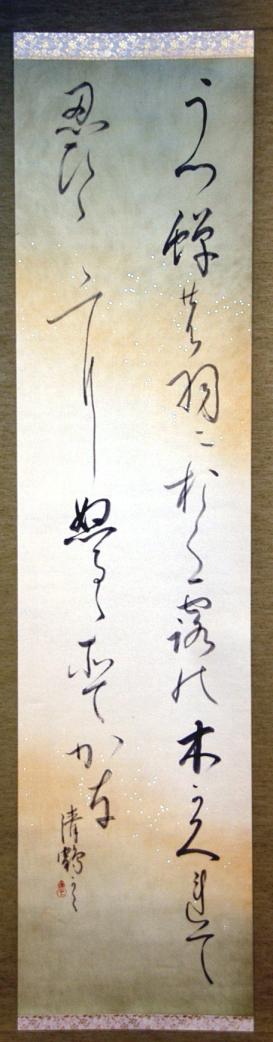 うつ蝉の羽におく露の木かくれて
忍ひ〳〵にぬるゝそてかな
清鶴